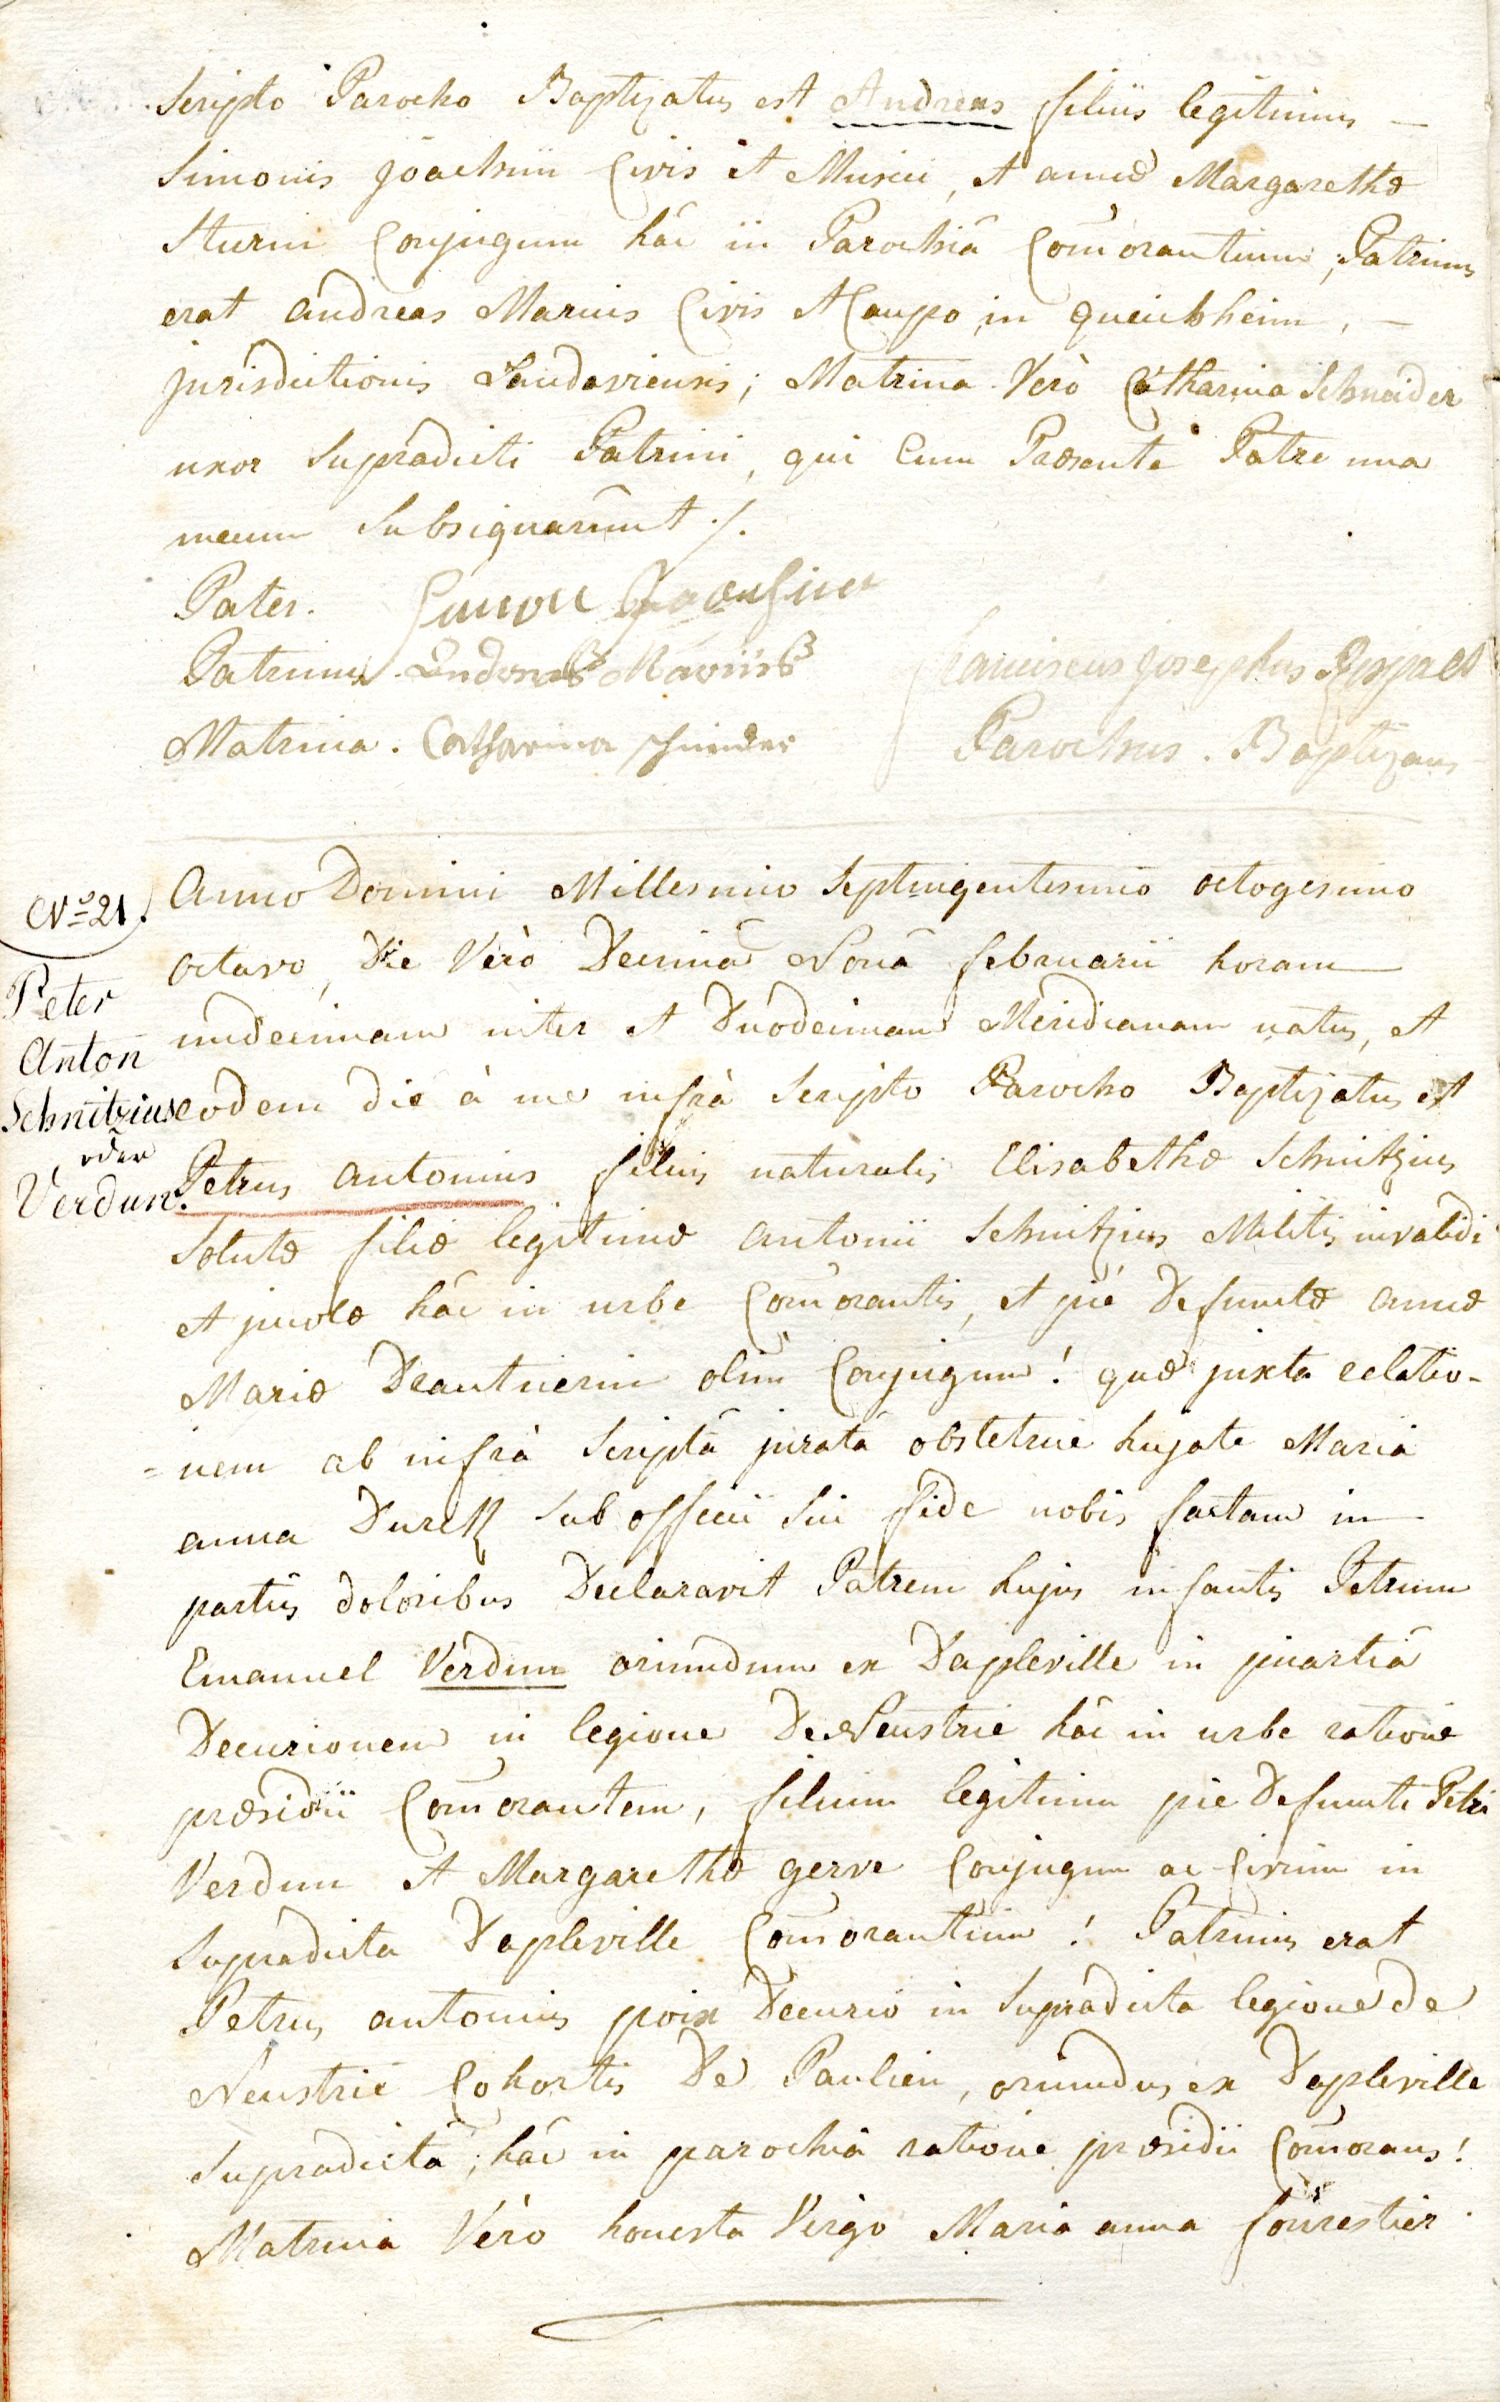 scripto Parocho Baptizatus est Andreas filius legitimus —
Simonis Joachim Civis et Musici, et annæ Margarethæ
Sturm Conjugum hâc in Parochiâ Com̄orantium, Patrinus
erat andreas Marius Civis et Caupo in queichheim, —
jurisdictionis Landaviensis; Matrina Verò Catharina Schneider
uxor supradicti Patrini, qui Cum Præsente Patre una
mecum subsignarunt ./.
Pater. Simon
Patrinus. Andreas Mariuß
Matrina. Catharina
Franciscus Josephus
Parochus. Baptizans
No 21.
Peter
Anton
Schnitzius
oder
Verdun.
Anno Domini Millesimo Septingentesimo octogesimo
octavo, Die Verò Decimâ Nonâ februarii horam —
undecimam inter et Duodecimam Meridianam natus, et
eodem die à me infrà scripto Parocho Baptizatus est
Petrus antonius filius naturalis Elisabethæ Schnitzius
solutæ filiæ legitimæ antonii Schnitzius Militis invalidi
et incolæ hâc in urbe Com̄orantis, et piè Defunctæ annæ
Mariæ olim Conjugum! quæ juxta relatio-
=nem ab infrà scriptâ juratâ obstetrice hujate Maria
anna sub officii sui fide nobis factam in
partûs doloribus Declaravit Patrem hujus infantis Petrum
Emanuel Verdun oriundum ex Dapleville in
Decurionem in legione De Neustrie hâc in urbe ratione
præsidii Com̄orantem, filium legitimum piè Defuncti Petri
Verdun et Margarethæ gerve Conjugum ac Civium in
supradicta Dapleville Com̄orantium! Patrinus erat
Petrus antonius poix Decurio in supradicta legione de
Neustrie Cohortis De Paulien, oriundus ex Dapleville
supradictâ, hâc in parochiâ ratione præsidii Com̄orans!
Matrina Verò honesta Virgo Maria anna fourestier